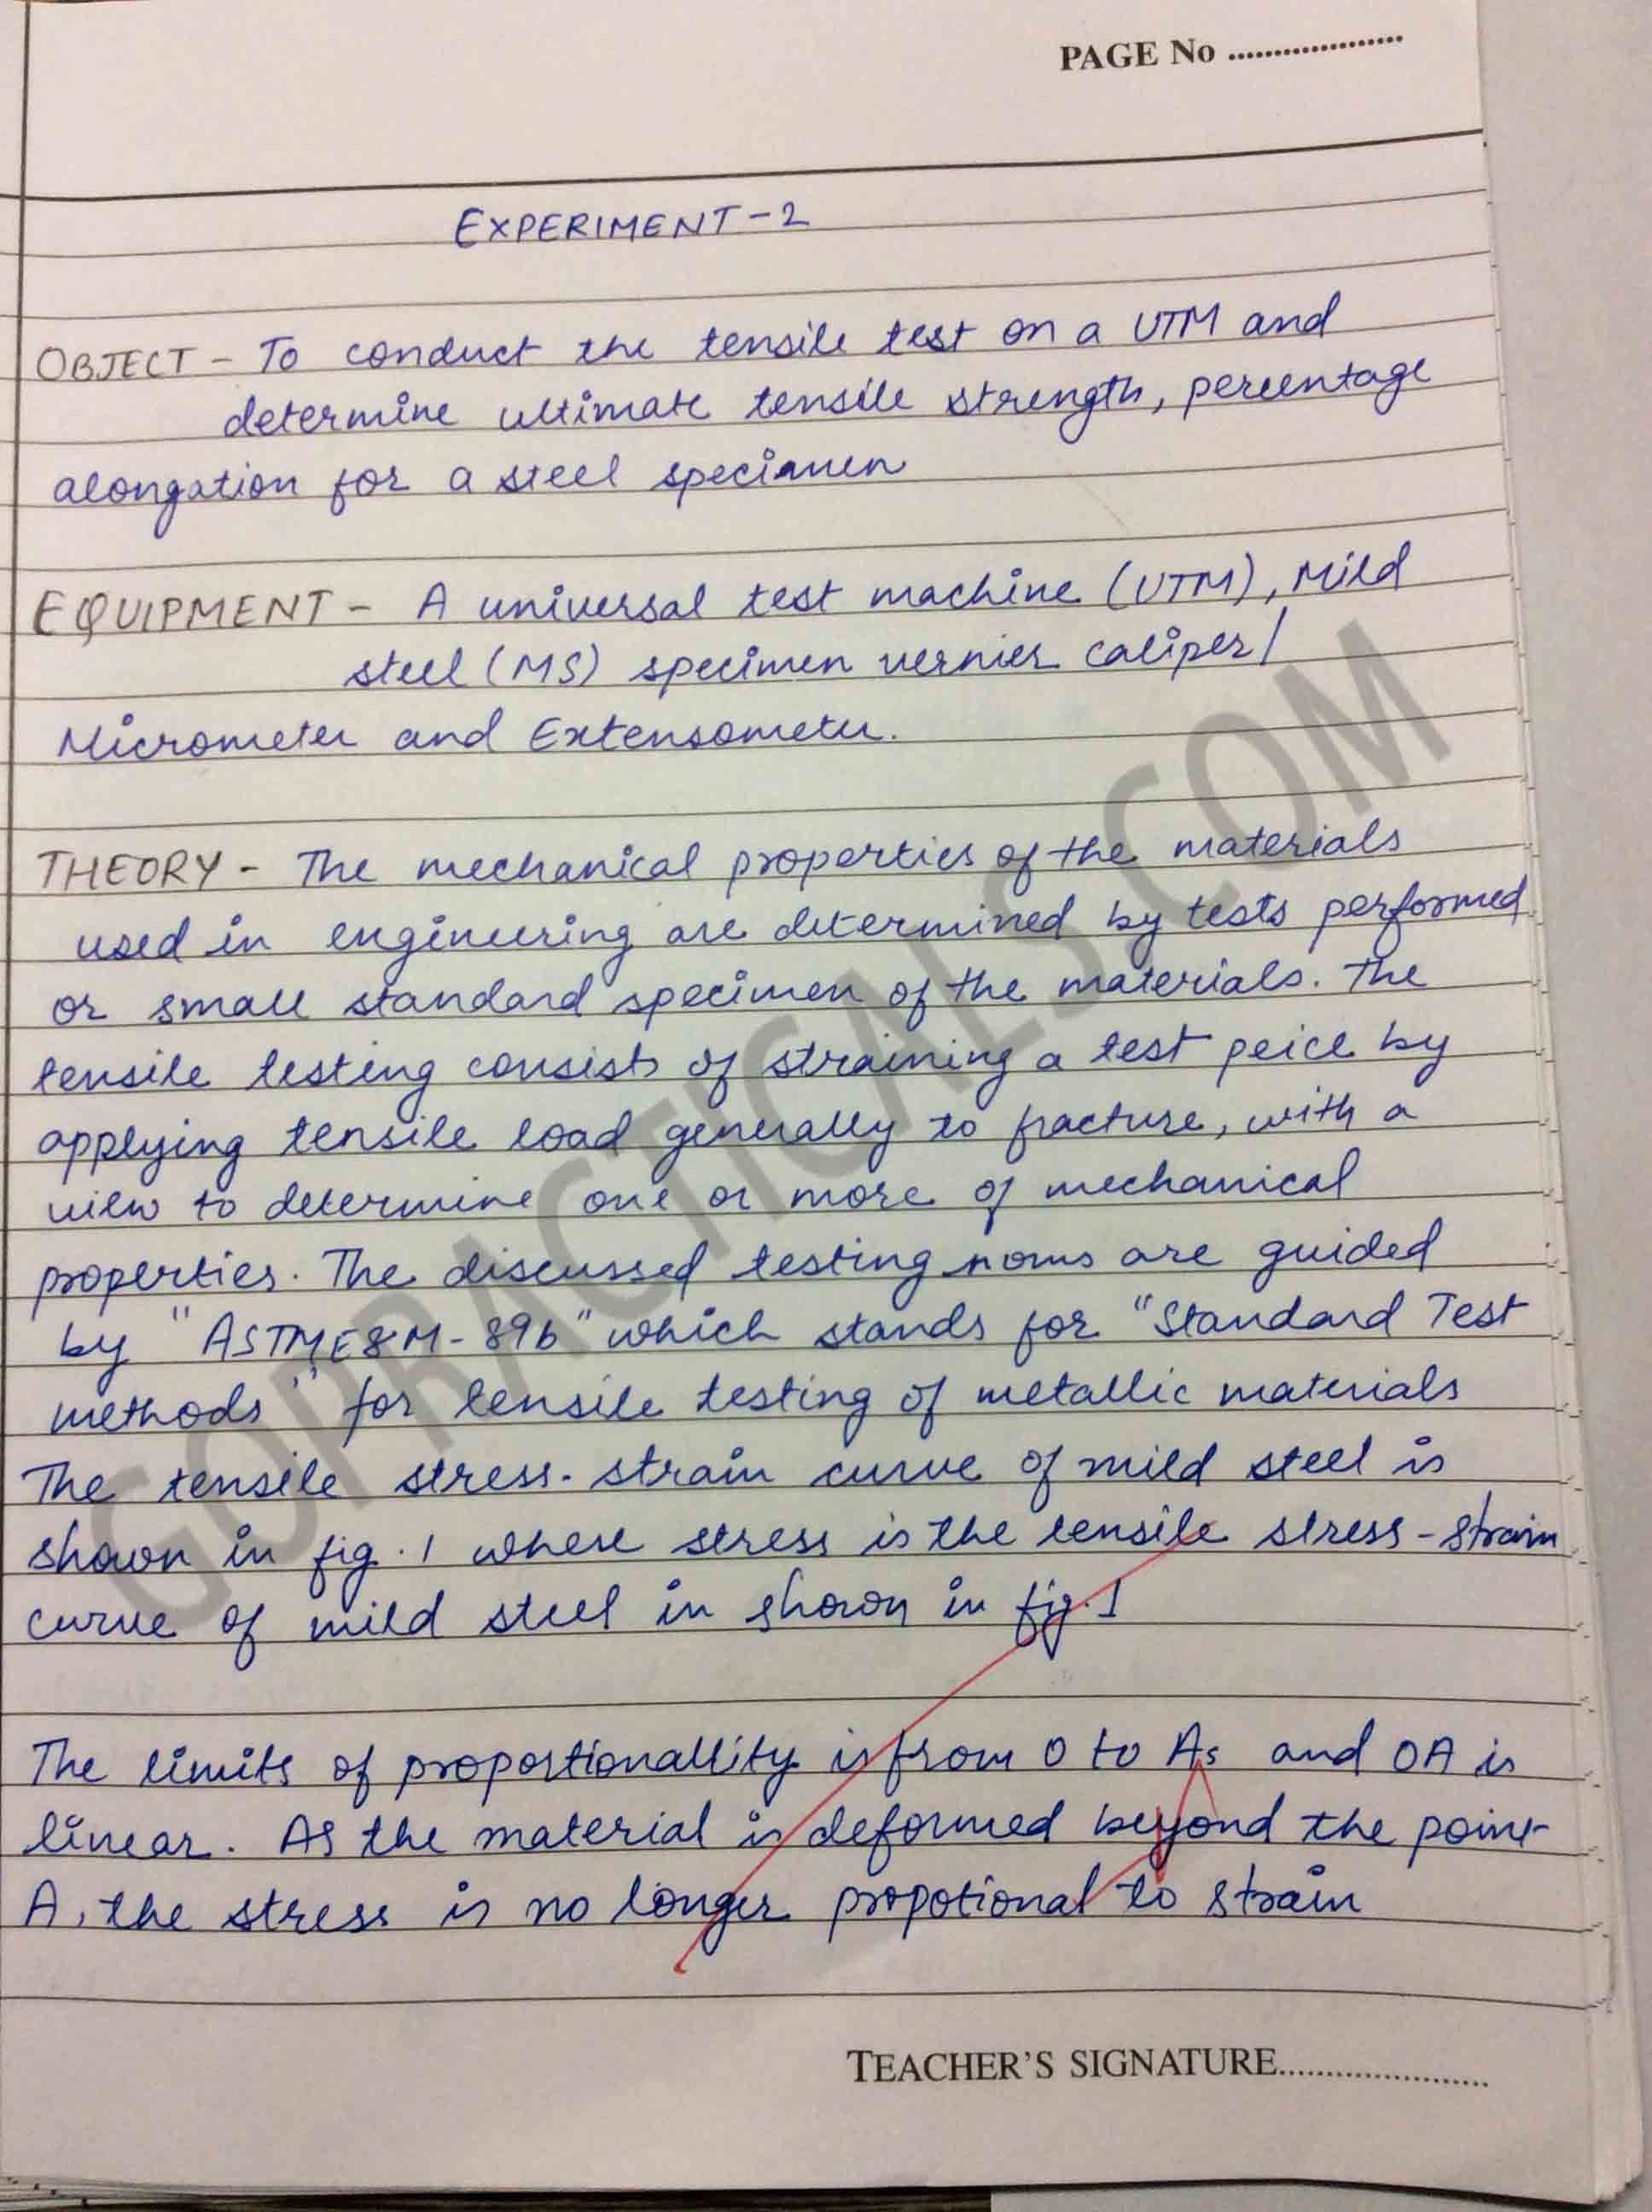 PAGE No ....................
EXPERIMENT-2
OBJECT - To conduct the tensile test on a UTM and
determine ultimate tensile strength, percentage
alongation for a steel specimen
EQUIPMENT - A universal test machine (UTM), Mild
steel (MS) specimen vernier caliper/
Micrometer and Extensometer.
THEORY - The mechanical properties of the materials
used in engineering are determined by tests performed
or small standard specimen of the materials. The
tensile testing consists of straining a test peice by
applying tensile load generally to fracture, with a
view to determine one or more of mechanical
properties. The discussed testing noms are guided
by "ASTME8M-896" which stands for "Standard Test
methods" for tensile testing of metallic materials
The tensile stress-strain curve of mild steel is
shown in fig. 1 where stress is the tensile stress-strain
curve of mild steel in shown in fig.1
The limits of proportionallity is from O to As and OA is
linear. As the material is deformed beyond the point
A, the stress is no longer propotional to strain
TEACHER'S SIGNATURE......................
GOPRACTICALS.COM